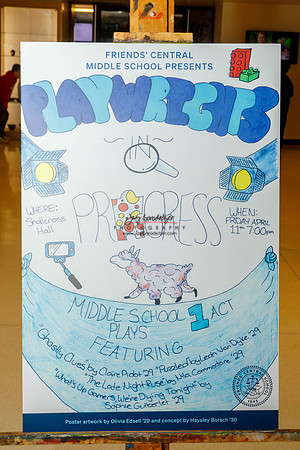 FRIENDS' CENTRAL
MIDDLE SCHOOL PRESENTS
PLAYWRIGHTS
~IN~
PROGRESS
WHERE:
Shallcross
Hall
WHEN:
FRIDAY APRIL
11th 7:00pm
PHOTOGRAPHY
MIDDLE SCHOOL 1 ACT
PLAYS
FEATURING
Ghostly Clues by Claire Pidot '29 "Puzzled" by Leah Van Dyke '29
"The Late Night Ruse" by Vila Commodore '29
"What's Up Gamers, We're Dying Tonight" by
Sophie '29
Poster artwork by Olivia Edsell '29 and concept by Haysley Borsch '30